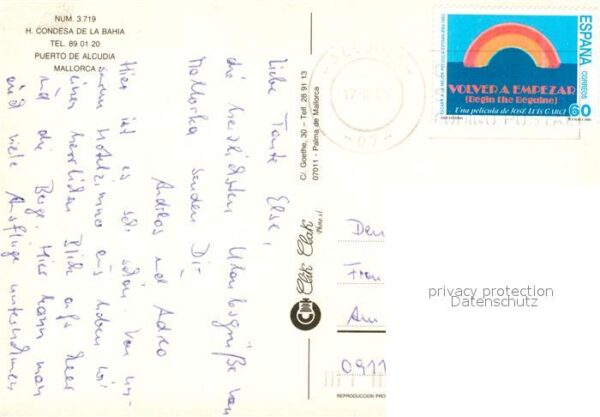 NUM. 3.719
H. CONDESA DE LA BAHIA
TEL. 89 01 20
PUERTO DE ALCUDIA
MALLORCA
Liebe Tante Else,
die herzlichsten Urlaubsgrüße von
Mallorka senden Dir
Andreas und
Hier ist es sehr schön. Von un-
serm Hotelzimmer aus haben wir
einen herrlichen Blick aufs Meer
und die Berge. Hier kann man
auch viele Ausflüge unternehmen
C/. Goethe, 30 - Telf. 28 91 13
07011 - Palma de Mallorca
Clik Clak
Photo s.l.
-07-
ESPAÑA
CORREOS
60
VOLVER A EMPEZAR
(Begin the Beguine)
Una película de JOSÉ LUIS GARCI
Frau
Am
0911
privacy protection
Datenschutz
REPRODUCCION PRO